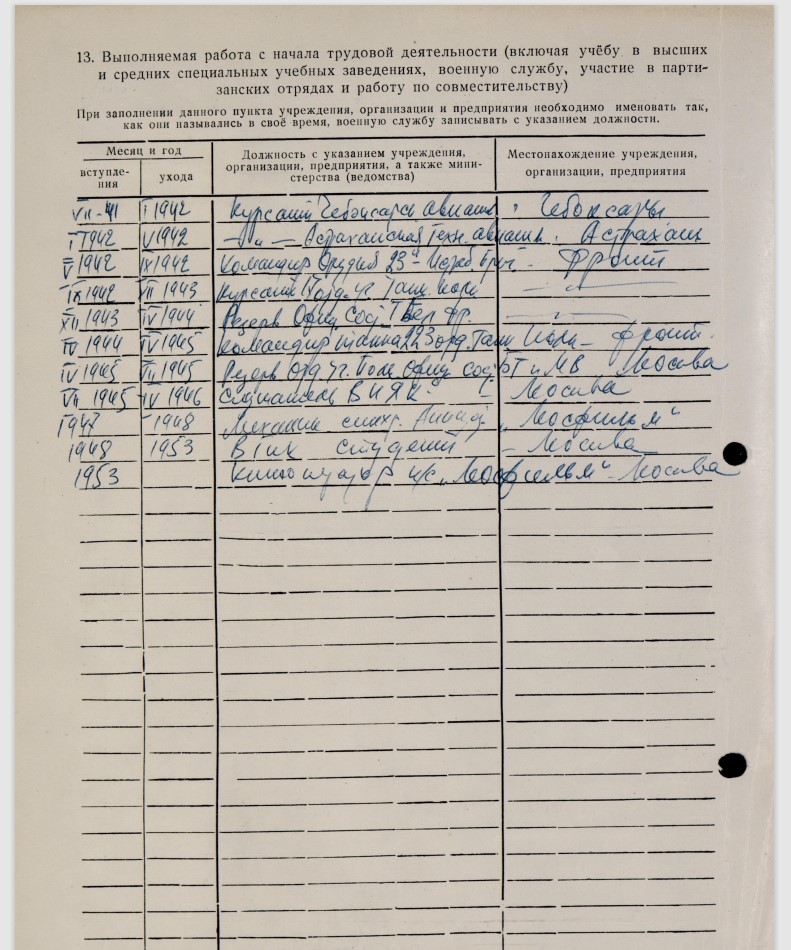 13. Выполняемая работа с начала трудовой деятельности (включая учёбу в высших
и средних специальных учебных заведениях, военную службу, участие в парти-
занских отрядах и работу по совместительству)
При заполнении данного пункта учреждения, организации и предприятия необходимо именовать так,
как они назывались в своё время, военную службу записывать с указанием должности.
Месяц и год
вступле-
ния
ухода
Должность с указанием учреждения,
организации, предприятия, а также мини-
стерства (ведомства)
Местонахождение учреждения,
организации, предприятия
VII-41 I 1942 Курсант Чебоксарск авиашк Чебоксары
I 1942 V 1942 —"— Астраханская Техн. авиашк. Астрахань
V 1942 IX 1942 Командир Орудия 23й Истреб. - Фронт
IX 1942 XII 1943 Курсант Танк.
XII 1943 IV 1944 Резерв Офиц. Сост.
IV 1944 IV 1945 Командир танка 223 отд. Танк - фронт.
IV 1945 VII 1945 Резерв Отд. уч. Полк Офиц сост БТ и МВ Москва
VII 1945 IV 1946 Слушатель ВИЯК - Москва
1947 1948 Механик синхр. "Мосфильм"
1948 1953 ВГИК студент - Москва
1953 к/с "Мосфильм" - Москва